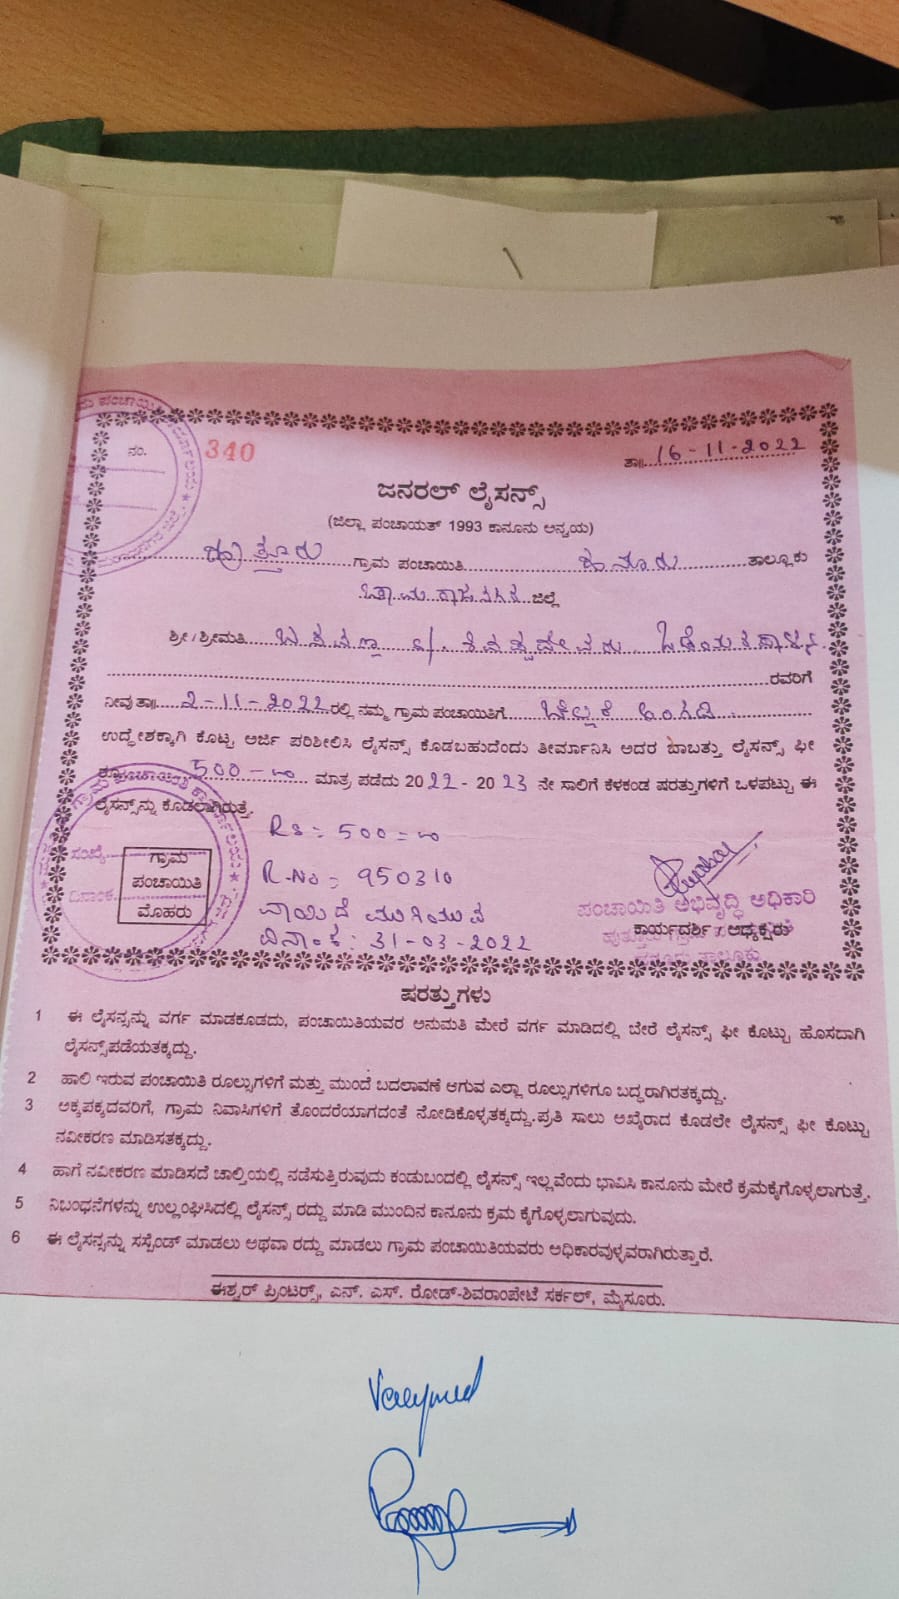 ನಂ. 340 ತಾ॥ 16-11-2022
ಜನರಲ್ ಲೈಸನ್ಸ್
(ಜಿಲ್ಲಾ ಪಂಚಾಯತ್ 1993 ಕಾನೂನು ಅನ್ವಯ)
ಗ್ರಾಮ ಪಂಚಾಯಿತಿ ಹನೂರು ತಾಲ್ಲೂಕು
ಚಾಮರಾಜನಗರ ಜಿಲ್ಲೆ
ಶ್ರೀ/ಶ್ರೀಮತಿ
ರವರಿಗೆ
ನೀವು ತಾ॥ 2-11-2022 ರಲ್ಲಿ ನಮ್ಮ ಗ್ರಾಮ ಪಂಚಾಯಿತಿಗೆ ಚಿಲ್ಲರೆ ಅಂಗಡಿ
ಉದ್ದೇಶಕ್ಕಾಗಿ ಕೊಟ್ಟ ಅರ್ಜಿ ಪರಿಶೀಲಿಸಿ ಲೈಸನ್ಸ್ ಕೊಡಬಹುದೆಂದು ತೀರ್ಮಾನಿಸಿ ಅದರ ಬಾಬತ್ತು ಲೈಸನ್ಸ್ ಫೀ
ರೂ. 500-00 ಮಾತ್ರ ಪಡೆದು 2022 - 2023 ನೇ ಸಾಲಿಗೆ ಕೆಳಕಂಡ ಷರತ್ತುಗಳಿಗೆ ಒಳಪಟ್ಟು ಈ
ಲೈಸನ್ಸ್‌ನ್ನು ಕೊಡಲಾಗಿರುತ್ತೆ.
Rs = 500=00
R.No = 950310
ವಾಯಿದೆ ಮುಗಿಯುವ
ದಿನಾಂಕ: 31-03-2022
ಗ್ರಾಮ
ಪಂಚಾಯಿತಿ
ಮೊಹರು
ಪಂಚಾಯಿತಿ ಅಭಿವೃದ್ಧಿ ಅಧಿಕಾರಿ
ಕಾರ್ಯದರ್ಶಿ / ಅಧ್ಯಕ್ಷರು
ಹನೂರು ತಾಲ್ಲೂಕು
ಷರತ್ತುಗಳು
1 ಈ ಲೈಸನ್ಸನ್ನು ವರ್ಗ ಮಾಡಕೂಡದು, ಪಂಚಾಯಿತಿಯವರ ಅನುಮತಿ ಮೇರೆ ವರ್ಗ ಮಾಡಿದಲ್ಲಿ ಬೇರೆ ಲೈಸನ್ಸ್ ಫೀ ಕೊಟ್ಟು ಹೊಸದಾಗಿ
ಲೈಸನ್ಸ್‌ಪಡೆಯತಕ್ಕದ್ದು.
2 ಹಾಲಿ ಇರುವ ಪಂಚಾಯಿತಿ ರೂಲ್ಸುಗಳಿಗೆ ಮತ್ತು ಮುಂದೆ ಬದಲಾವಣೆ ಆಗುವ ಎಲ್ಲಾ ರೂಲ್ಸುಗಳಿಗೂ ಬದ್ಧರಾಗಿರತಕ್ಕದ್ದು.
3 ಅಕ್ಕಪಕ್ಕದವರಿಗೆ, ಗ್ರಾಮ ನಿವಾಸಿಗಳಿಗೆ ತೊಂದರೆಯಾಗದಂತೆ ನೋಡಿಕೊಳ್ಳತಕ್ಕದ್ದು. ಪ್ರತಿ ಸಾಲು ಅಖೈರಾದ ಕೂಡಲೇ ಲೈಸನ್ಸ್ ಫೀ ಕೊಟ್ಟು
ನವೀಕರಣ ಮಾಡಿಸತಕ್ಕದ್ದು.
4 ಹಾಗೆ ನವೀಕರಣ ಮಾಡಿಸದೆ ಚಾಲ್ತಿಯಲ್ಲಿ ನಡೆಸುತ್ತಿರುವುದು ಕಂಡುಬಂದಲ್ಲಿ ಲೈಸನ್ಸ್ ಇಲ್ಲವೆಂದು ಭಾವಿಸಿ ಕಾನೂನು ಮೇರೆ ಕ್ರಮಕೈಗೊಳ್ಳಲಾಗುತ್ತೆ.
5 ನಿಬಂಧನೆಗಳನ್ನು ಉಲ್ಲಂಘಿಸಿದಲ್ಲಿ ಲೈಸನ್ಸ್ ರದ್ದು ಮಾಡಿ ಮುಂದಿನ ಕಾನೂನು ಕ್ರಮ ಕೈಗೊಳ್ಳಲಾಗುವುದು.
6 ಈ ಲೈಸನ್ಸನ್ನು ಸಸ್ಪೆಂಡ್ ಮಾಡಲು ಅಥವಾ ರದ್ದು ಮಾಡಲು ಗ್ರಾಮ ಪಂಚಾಯಿತಿಯವರು ಅಧಿಕಾರವುಳ್ಳವರಾಗಿರುತ್ತಾರೆ.
ಈಶ್ವರ್ ಪ್ರಿಂಟರ್ಸ್, ಎನ್. ಎಸ್. ರೋಡ್-ಶಿವರಾಂಪೇಟೆ ಸರ್ಕಲ್, ಮೈಸೂರು.